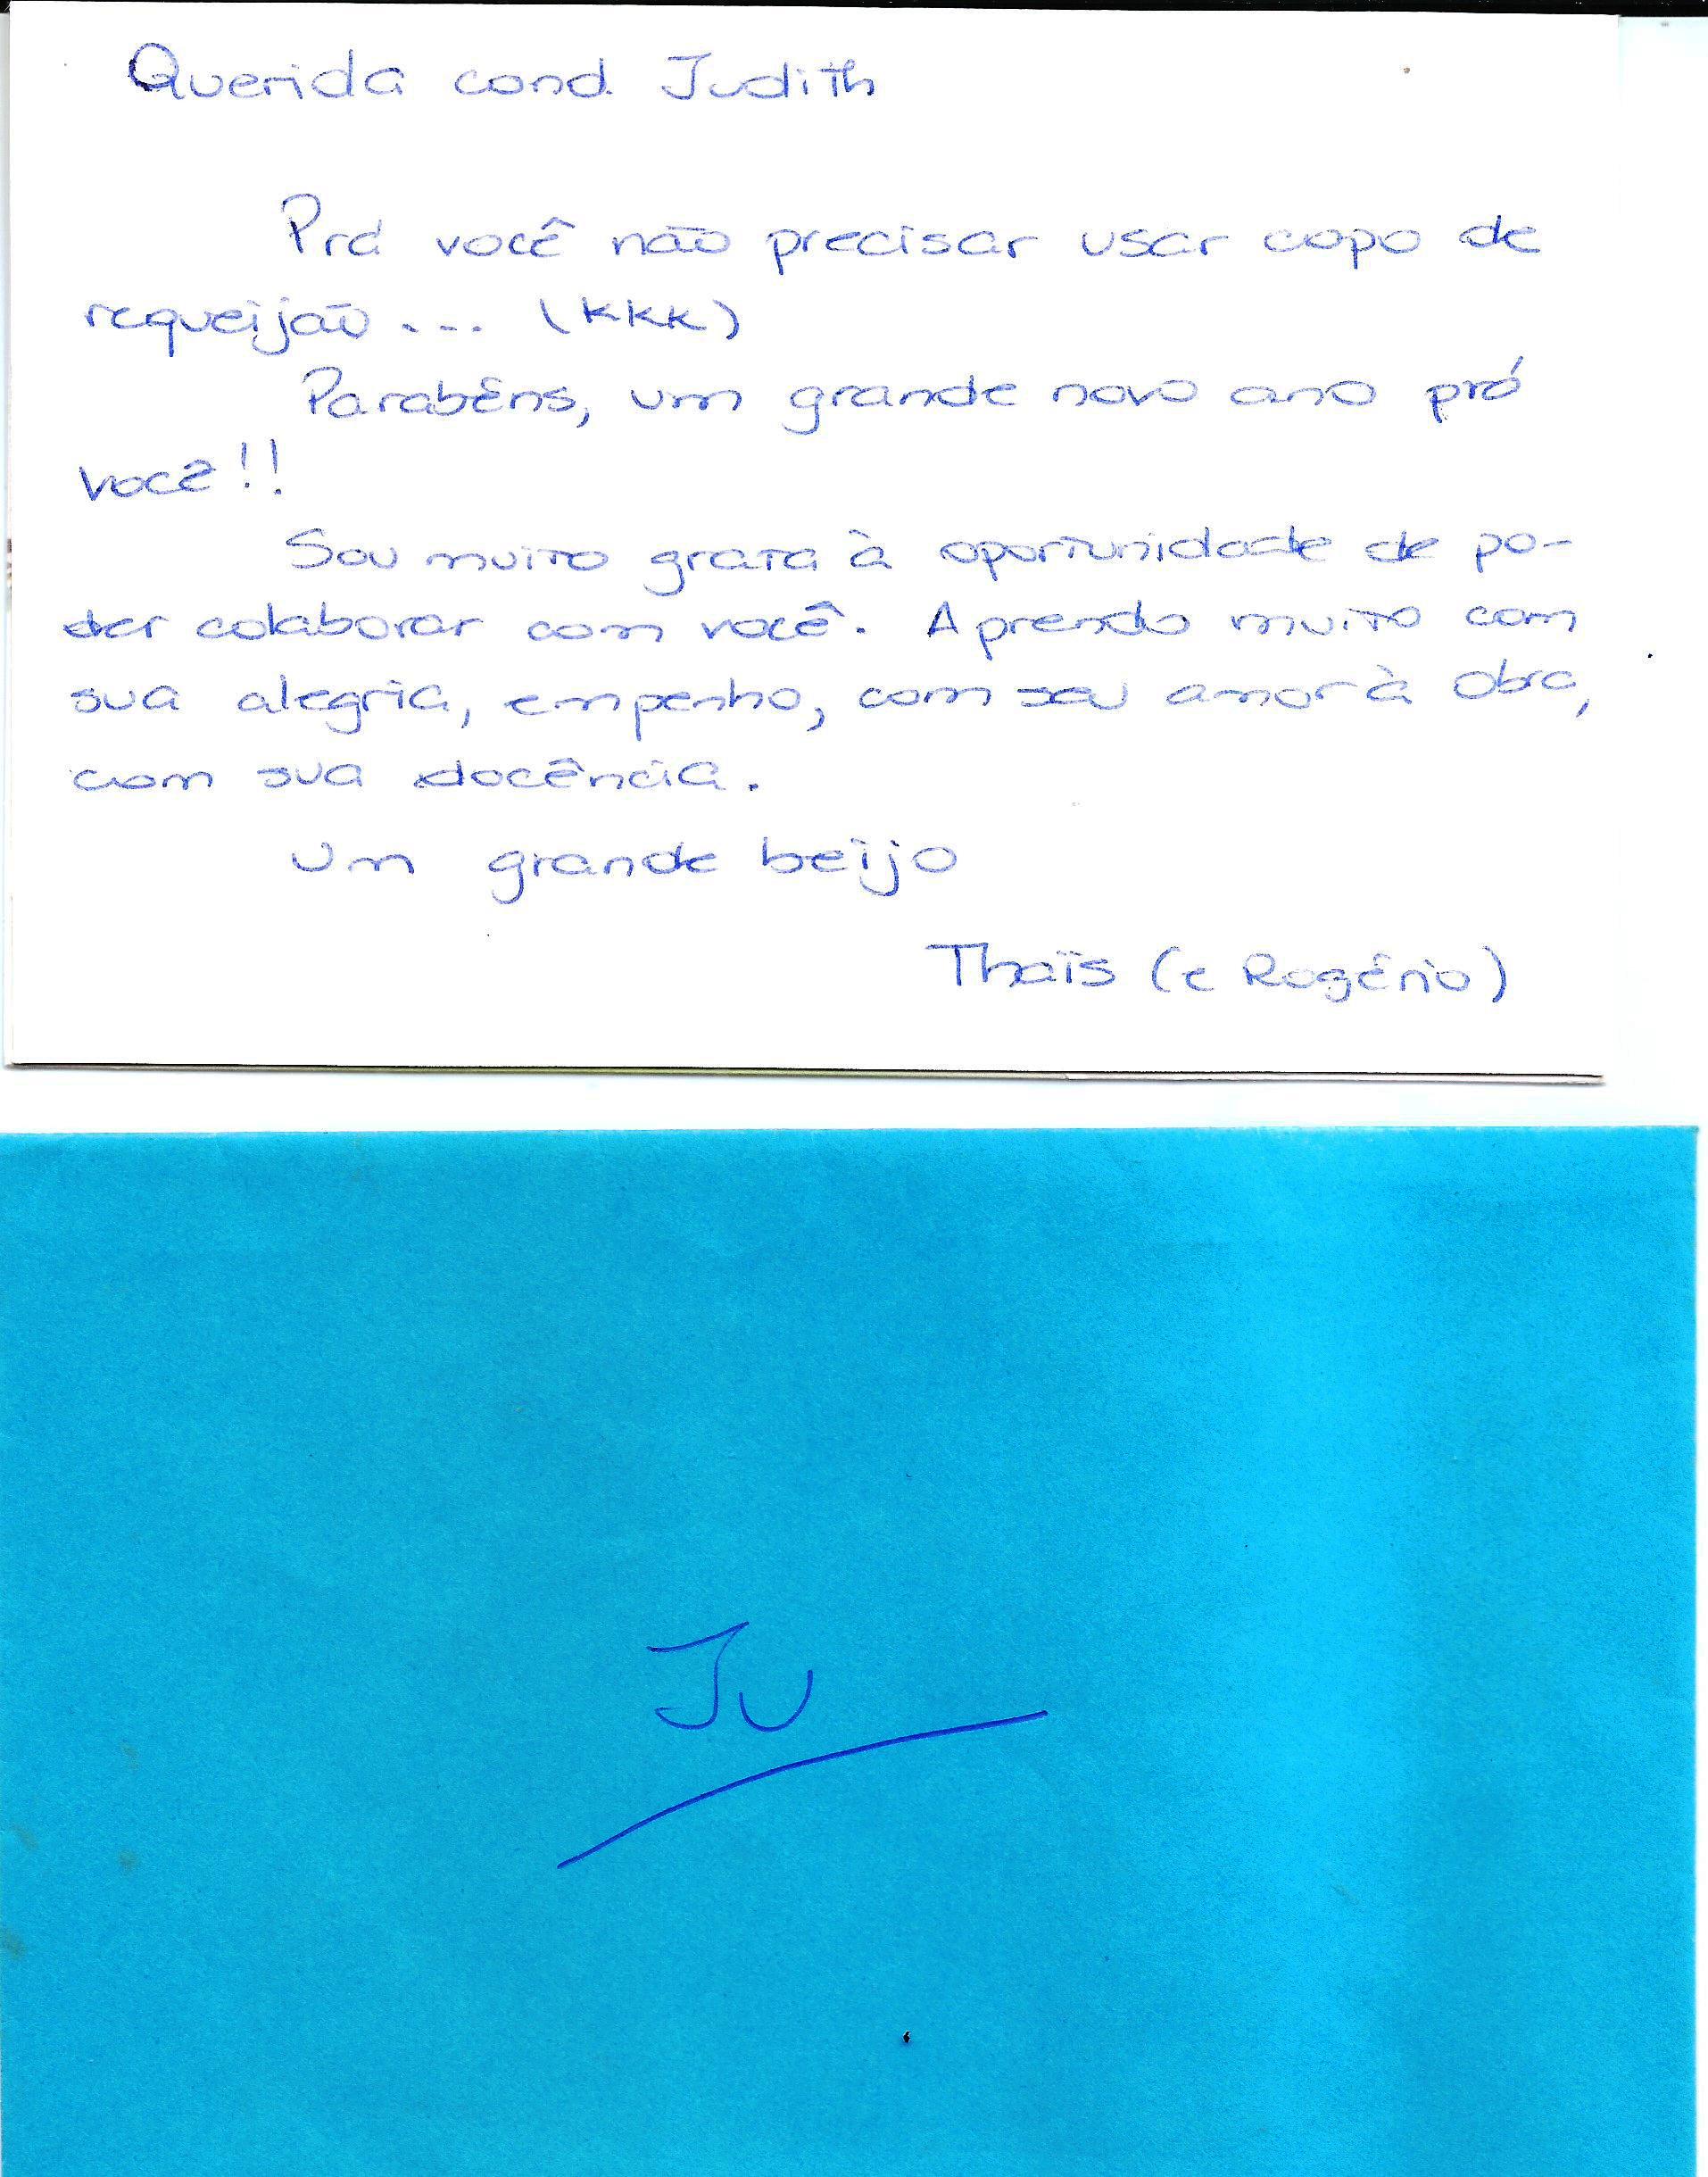 Querida cond. Judith
Prá você não precisar usar copo de
requeijão... (KKK)
Parabéns, um grande novo ano prá
você!!
Sou muito grata à oportunidade de po-
der colaborar com você. Aprendo muito com
sua alegria, empenho, com seu amor à Obra,
com sua docência.
Um grande beijo
Thaïs (e Rogério)
Ju